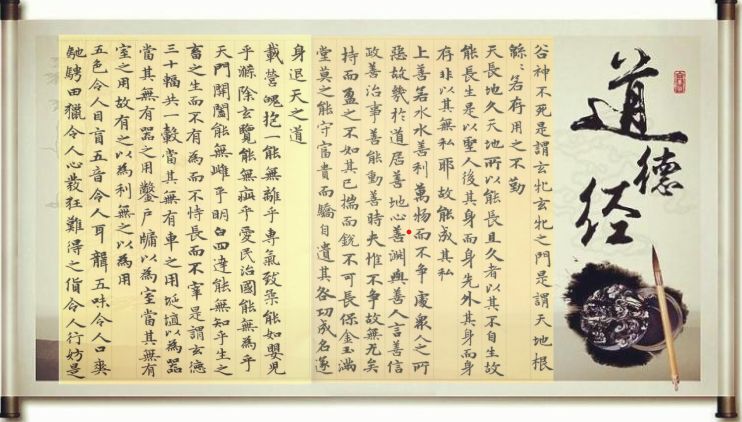 道德经
谷神不死是謂玄牝玄牝之門是謂天地根
緜〻若存用之不勤
天長地久天地所以能長且久者以其不自生故
能長生是以聖人後其身而身先外其身而身
存非以其無私耶故能成其私
上善若水水善利萬物而不爭處眾人之所
惡故幾於道居善地心善淵與善人言善信
政善治事善能動善時夫惟不爭故無尤矣
持而盈之不如其已揣而銳不可長保金玉滿
堂莫之能守富貴而驕自遺其咎功成名遂
身退天之道
載營魄抱一能無離乎專氣致柔能如嬰兒
乎滌除玄覽能無疵乎愛民治國能無為乎
天門開闔能無雌乎明白四達能無知乎生之
畜之生而不有為而不恃長而不宰是謂玄德
三十輻共一轂當其無有車之用埏埴以為器
當其無有器之用鑿戶牖以為室當其無有
室之用故有之以為利無之以為用
五色令人目盲五音令人耳聾五味令人口爽
馳騁田獵令人心發狂難得之貨令人行妨是